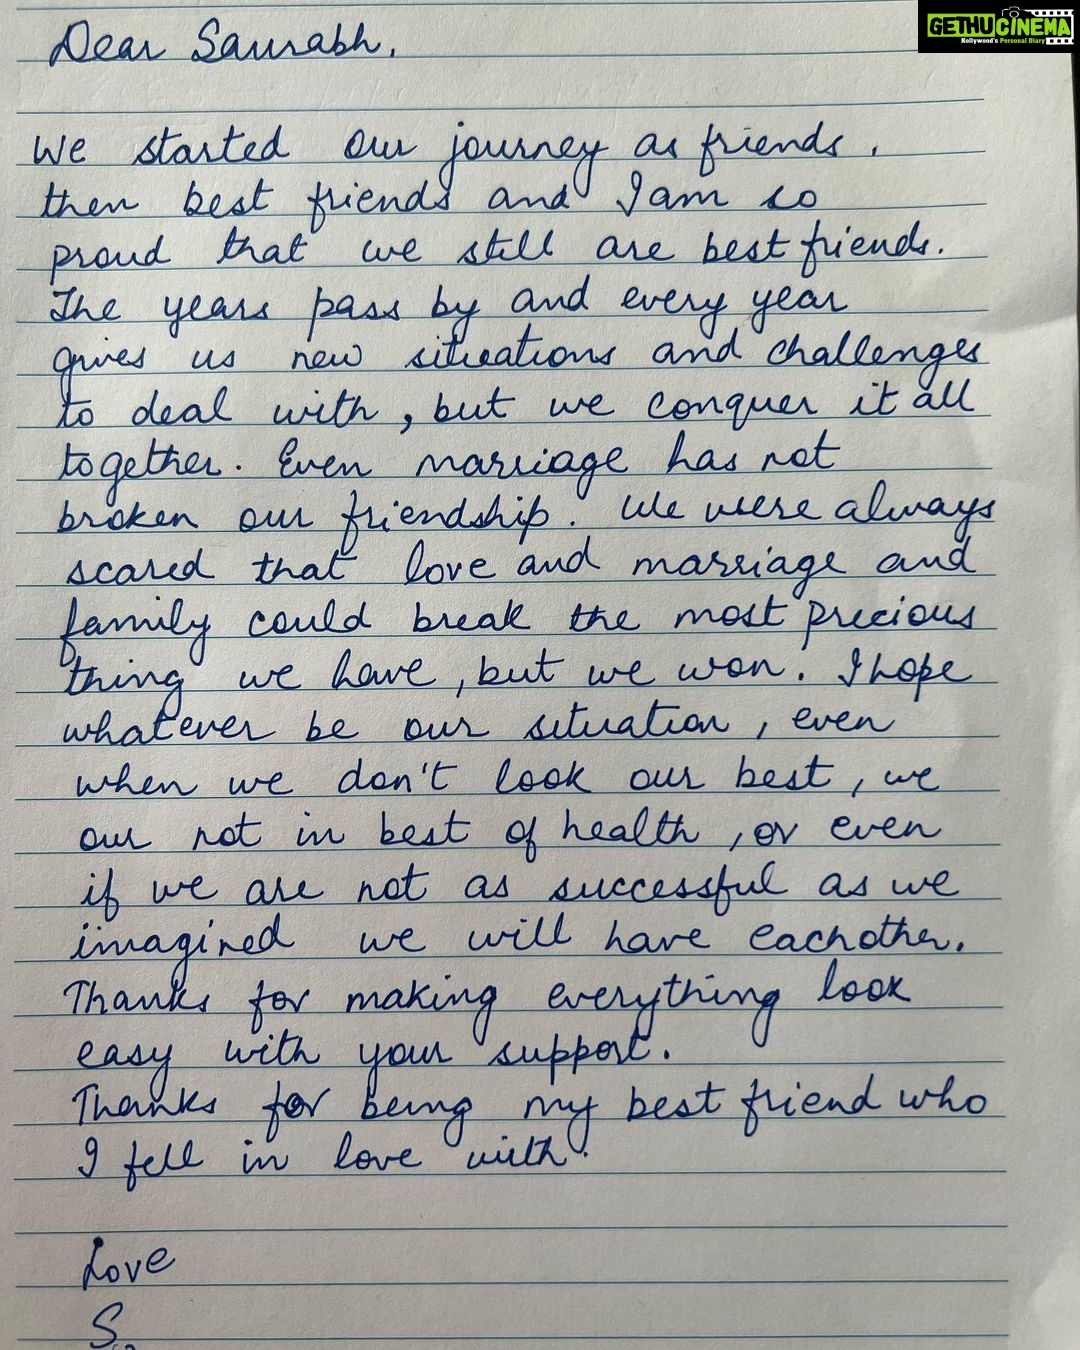 GETHUCINEMA
Kollywood's Personal Diary
Dear Saurabh,
We started our journey as friends,
then best friends and I am so
proud that we still are best friends.
The years pass by and every year
gives us new situations and challenges
to deal with, but we conquer it all
together. Even marriage has not
broken our friendship. We were always
scared that love and marriage and
family could break the most precious
thing we have, but we won. I hope
whatever be our situation, even
when we don't look our best, we
our not in best of health, or even
if we are not as successful as we
imagined we will have eachother.
Thanks for making everything look
easy with your support.
Thanks for being my best friend who
I fell in love with.
Love
S